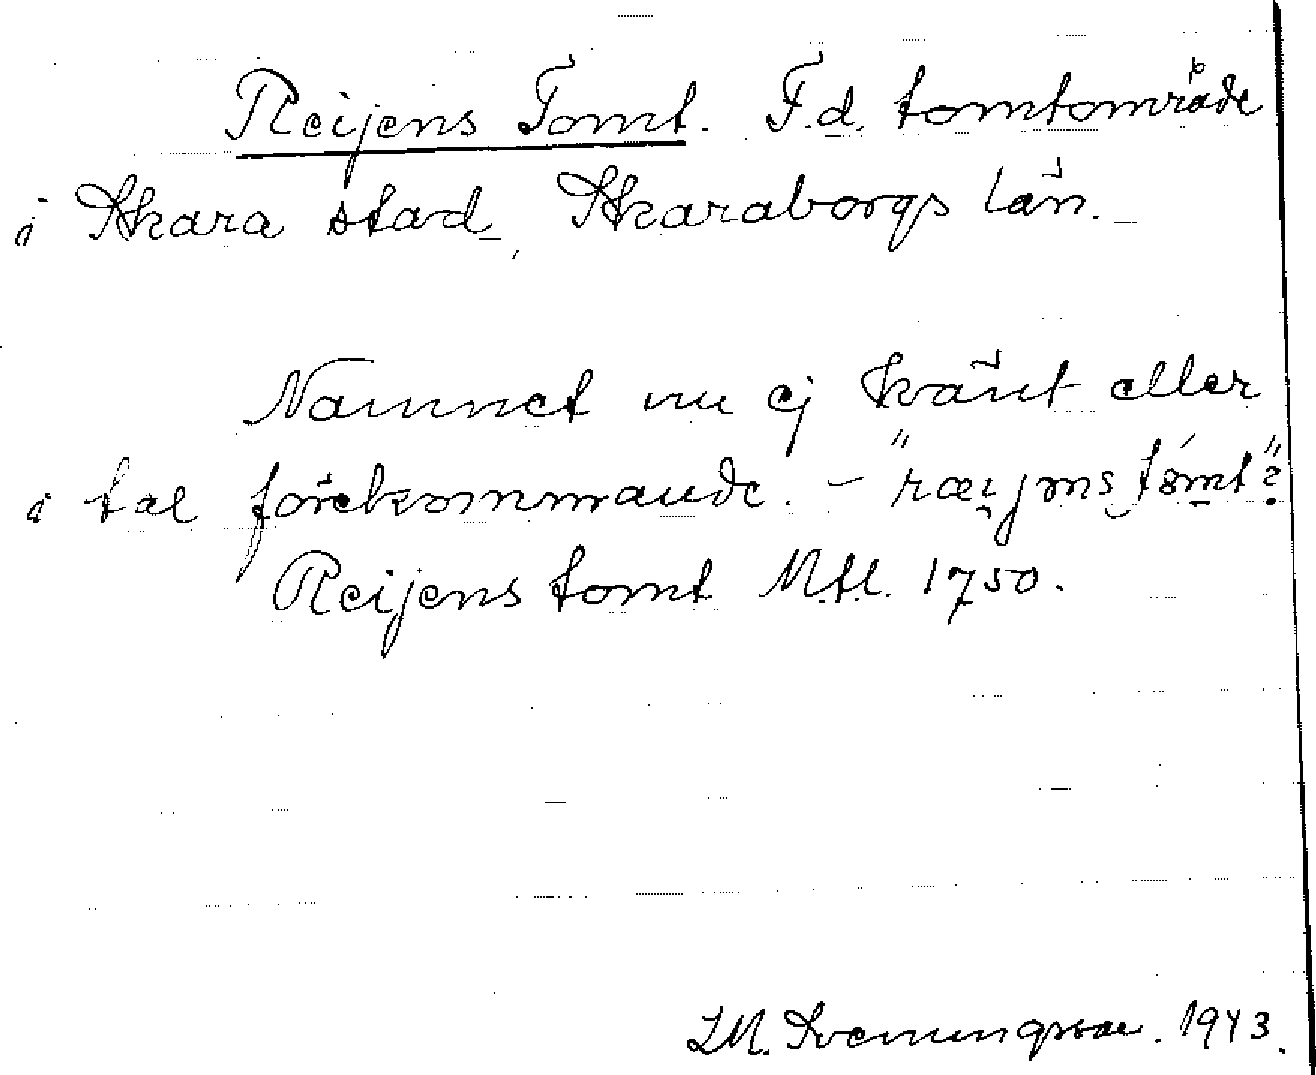 Reijens Tomt. F.d. tomtområde
i Skara stad, Skaraborgs län.
Namnet nu ej känt eller
i tal förekommande. - "
Reijens tomt Mtl. 1750.
1943.